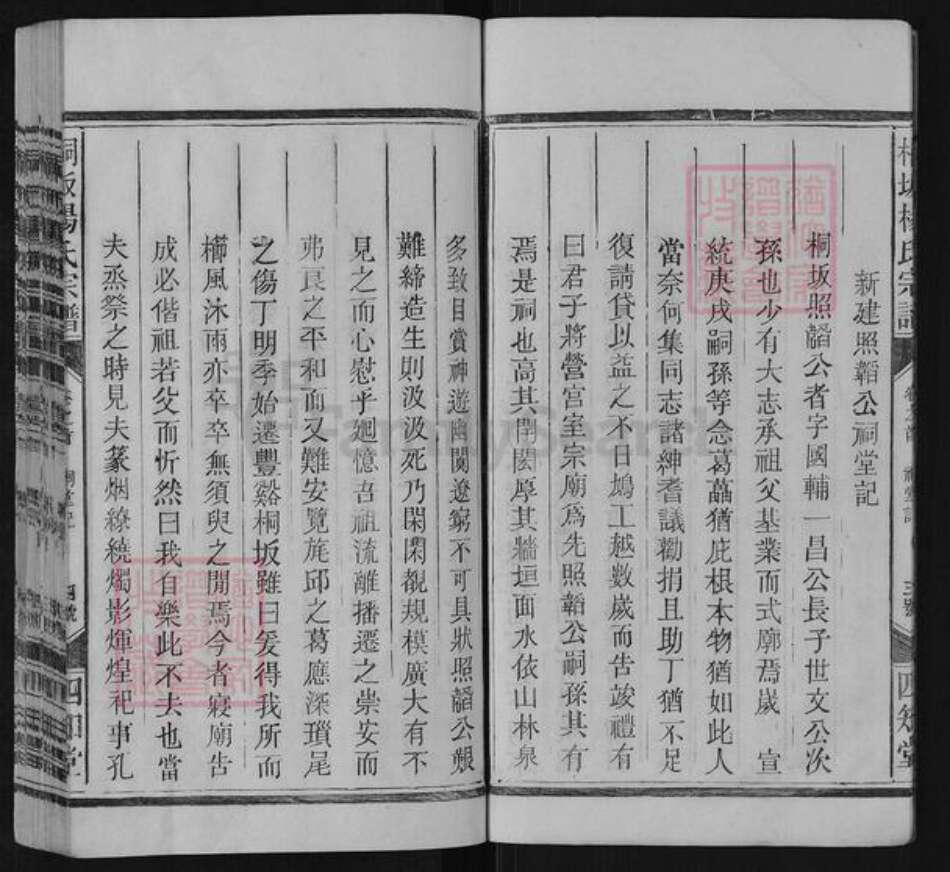 新建照韜公祠堂記
桐坂照韜公者字國輔一昌公長子世文公次
孫也少有大志承祖父基業而式廓焉歲　宣
統庚戌嗣孫等念葛藟猶庇根本物猶如此人
當奈何集同志諸紳耆議勸捐且助丁猶不足
復請貸以益之不日鳩工越數歲而告竣禮有
曰君子將營宮室宗廟為先照韜公嗣孫其有
焉是祠也高其閈閎厚其牆垣面水依山林泉
多致目賞神遊幽閴遼窮不可具狀照韜公艱
難締造生則汲汲死乃閑閑覩規模廣大有不
見之而心慰乎廻憶吾祖流離播遷之崇安而
弗艮之平和而又難安覽旄邱之葛應深瑣尾
之傷丁明季始遷豐谿桐坂雖曰爰得我所而
櫛風沐雨亦卒卒無須臾之閒焉今者寢廟告
成必偕祖若父而忻然曰我有樂此不夫也當
夫烝祭之時見夫篆烟繚繞燭影煇煌祀事孔
桐坂楊氏宗譜
三號
四知堂
桐坂楊氏宗譜
四號
四知堂
FamilySearch